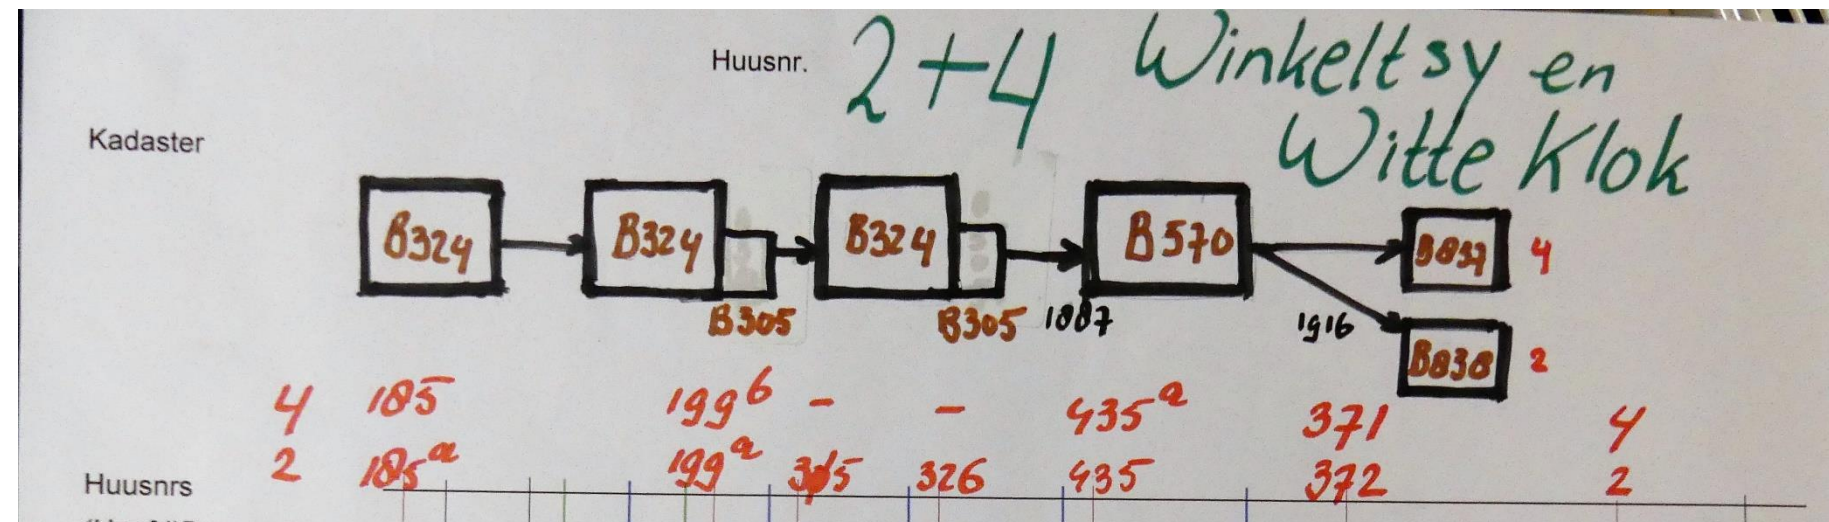 Huusnr. 2+4 Winkeltsy en
Witte Klok
Kadaster
B324 B324 B324 B570 B837 4
B305 B305 1887 1916
B838 2
4 185 199b - - 435a 371 4
2 185a 199a 326 435 372 2
Huusnrs